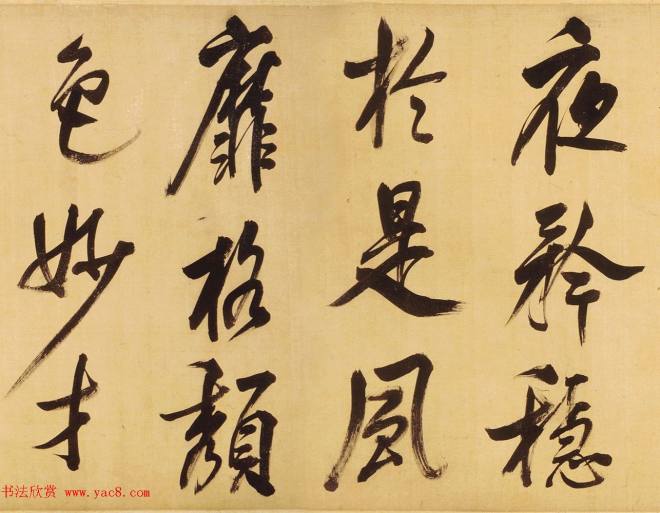 夜矜穩
於是風
靡格頽
色妙才
书法欣赏 www.yac8.com